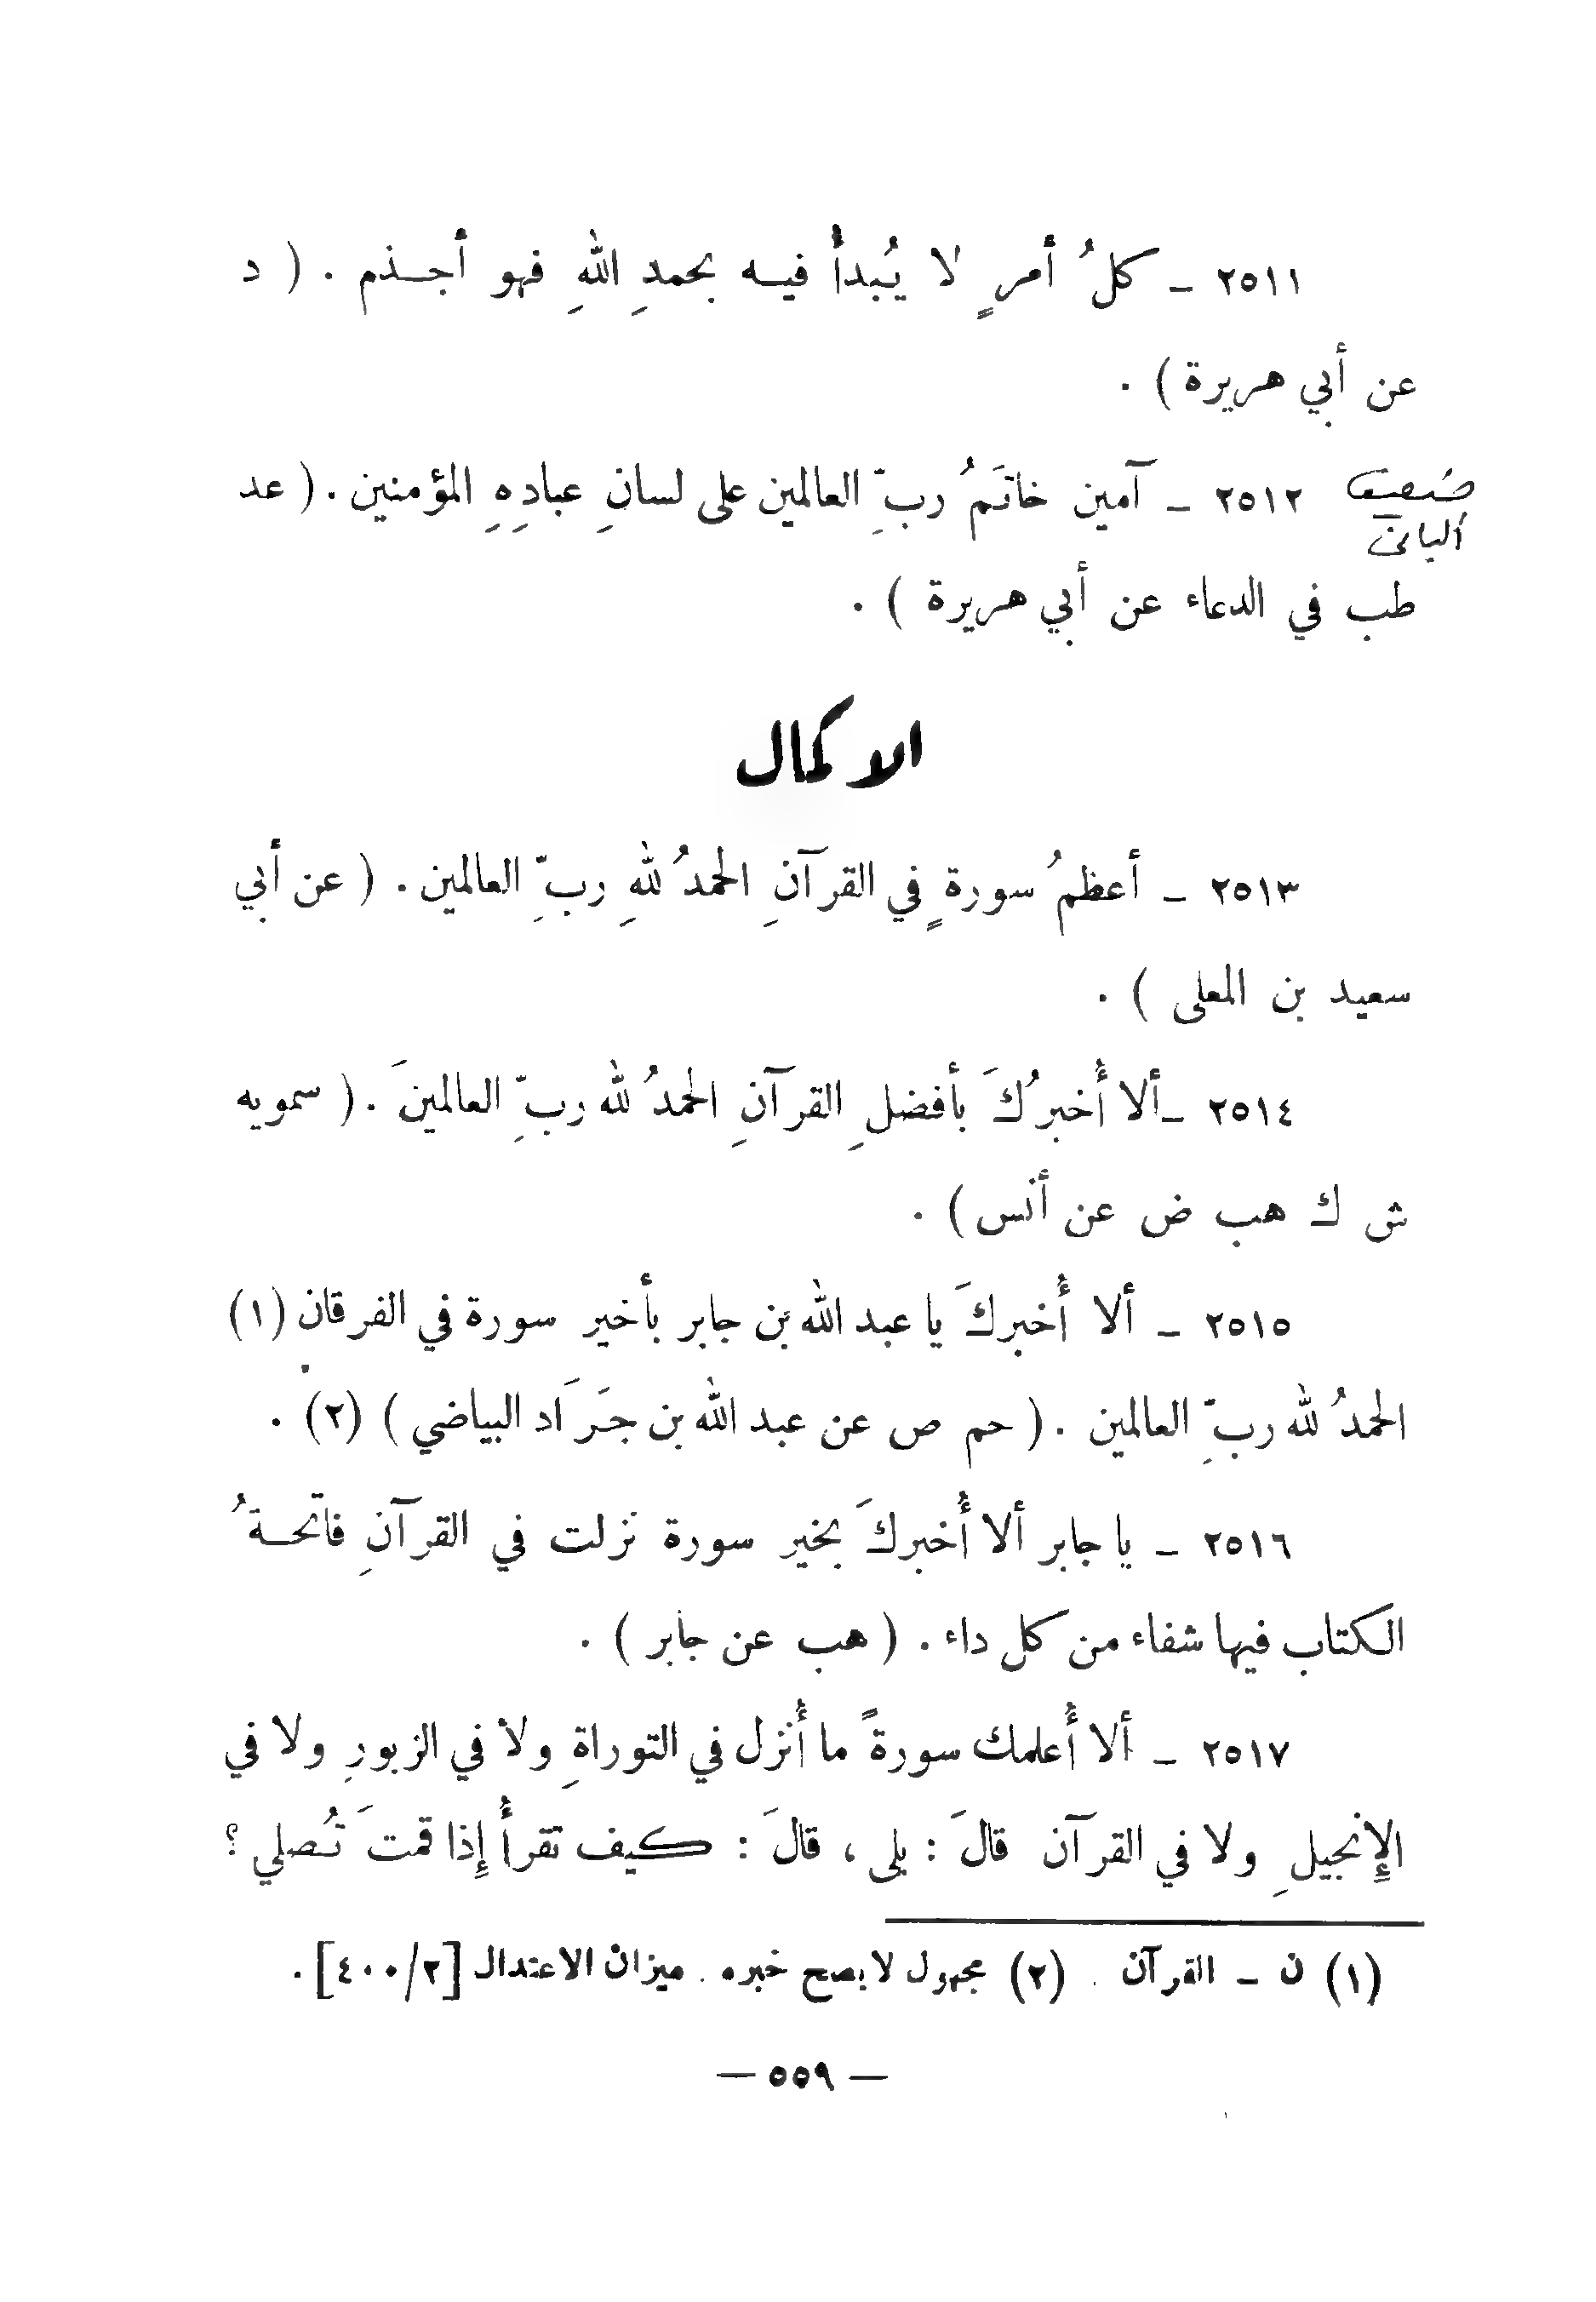 ٢٥١١ ـ كلُ أمرٍ لا يُبدأُ فيه بحمدِ اللهِ فهو أجذم . ( د
عن أبي هريرة ) .
٢٥١٢ ـ آمين خاتَمُ ربِّ العالمين على لسانِ عبادِهِ المؤمنين . ( عد
ضعيف
ألباني
طب في الدعاء عن أبي هريرة ) .
الاكمال
٢٥١٣ ـ أعظمُ سورةٍ في القرآنِ الحمدُ للهِ ربِّ العالمين . ( عن أبي
سعيد بن المعلى ) .
٢٥١٤ ـ ألا أُخبرُكَ بأفضلِ القرآنِ الحمدُ لله ربِّ العالمينَ . ( سمويه
ش ك هب ض عن أنس ) .
٢٥١٥ ـ ألا أُخبركَ يا عبد الله بن جابر بأخير سورة في الفرقان (١)
الحمدُ لله ربِّ العالمين . ( حم ص عن عبد الله بن جَرَاد البياضي ) (٢) .
٢٥١٦ ـ يا جابر ألا أُخبركَ بخير سورة نزلت في القرآنِ فاتحةُ
الكتاب فيها شفاء من كل داء . ( هب عن جابر ) .
٢٥١٧ ـ ألا أُعلمك سورةً ما أُنزل في التوراةِ ولا في الزبورِ ولا في
الإِنجيلِ ولا في القرآن قالَ : بلى ، قالَ : كيف تقرأُ إِذا قمتَ تُصلي ؟
(١) ن ـ القرآن . (٢) مجهول لا يصح خبره . ميزان الاعتدال [٢/٤٠٠] .
— ٥٥٩ —